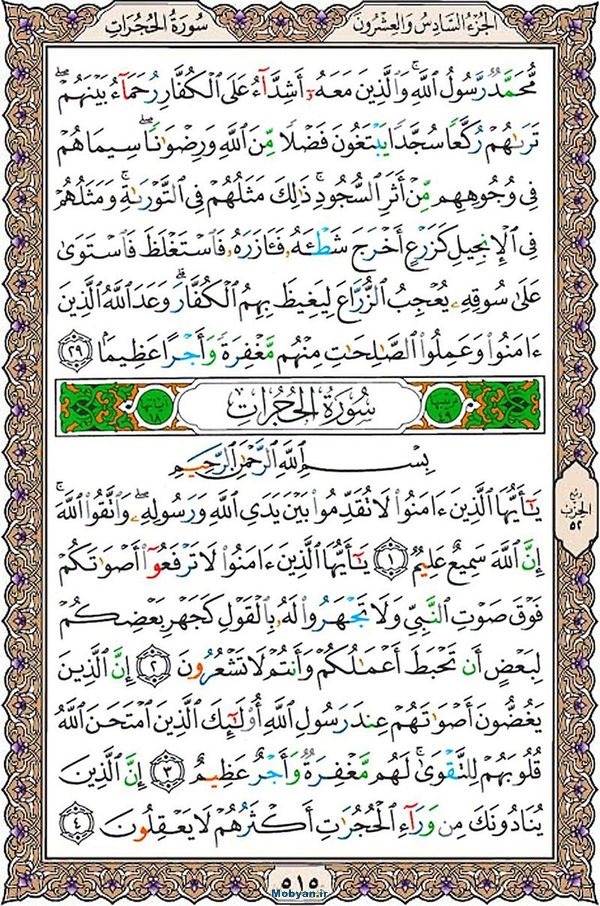 الجزء السادس والعشرون
سورة الحجرات
مُّحَمَّدٌ رَّسُولُ ٱللَّهِ ۚ وَٱلَّذِينَ مَعَهُۥٓ أَشِدَّآءُ عَلَى ٱلْكُفَّارِ رُحَمَآءُ بَيْنَهُمْ ۖ
تَرَىٰهُمْ رُكَّعًا سُجَّدًا يَبْتَغُونَ فَضْلًا مِّنَ ٱللَّهِ وَرِضْوَٰنًا ۖ سِيمَاهُمْ
فِى وُجُوهِهِم مِّنْ أَثَرِ ٱلسُّجُودِ ۚ ذَٰلِكَ مَثَلُهُمْ فِى ٱلتَّوْرَىٰةِ ۚ وَمَثَلُهُمْ
فِى ٱلْإِنجِيلِ كَزَرْعٍ أَخْرَجَ شَطْـَٔهُۥ فَـَٔازَرَهُۥ فَٱسْتَغْلَظَ فَٱسْتَوَىٰ
عَلَىٰ سُوقِهِۦ يُعْجِبُ ٱلزُّرَّاعَ لِيَغِيظَ بِهِمُ ٱلْكُفَّارَ ۗ وَعَدَ ٱللَّهُ ٱلَّذِينَ
ءَامَنُوا۟ وَعَمِلُوا۟ ٱلصَّٰلِحَٰتِ مِنْهُم مَّغْفِرَةً وَأَجْرًا عَظِيمًۢا ٢٩
سُورَةُ الحُجُرَاتِ
بِسْمِ ٱللَّهِ ٱلرَّحْمَٰنِ ٱلرَّحِيمِ
يَٰٓأَيُّهَا ٱلَّذِينَ ءَامَنُوا۟ لَا تُقَدِّمُوا۟ بَيْنَ يَدَىِ ٱللَّهِ وَرَسُولِهِۦ ۖ وَٱتَّقُوا۟ ٱللَّهَ ۚ
إِنَّ ٱللَّهَ سَمِيعٌ عَلِيمٌ ١ يَٰٓأَيُّهَا ٱلَّذِينَ ءَامَنُوا۟ لَا تَرْفَعُوٓا۟ أَصْوَٰتَكُمْ
فَوْقَ صَوْتِ ٱلنَّبِىِّ وَلَا تَجْهَرُوا۟ لَهُۥ بِٱلْقَوْلِ كَجَهْرِ بَعْضِكُمْ
لِبَعْضٍ أَن تَحْبَطَ أَعْمَٰلُكُمْ وَأَنتُمْ لَا تَشْعُرُونَ ٢ إِنَّ ٱلَّذِينَ
يَغُضُّونَ أَصْوَٰتَهُمْ عِندَ رَسُولِ ٱللَّهِ أُو۟لَٰٓئِكَ ٱلَّذِينَ ٱمْتَحَنَ ٱللَّهُ
قُلُوبَهُمْ لِلتَّقْوَىٰ ۚ لَهُم مَّغْفِرَةٌ وَأَجْرٌ عَظِيمٌ ٣ إِنَّ ٱلَّذِينَ
يُنَادُونَكَ مِن وَرَآءِ ٱلْحُجُرَٰتِ أَكْثَرُهُمْ لَا يَعْقِلُونَ ٤
ربع
الحزب
٥٢
٥١٥
Mobyan.ir